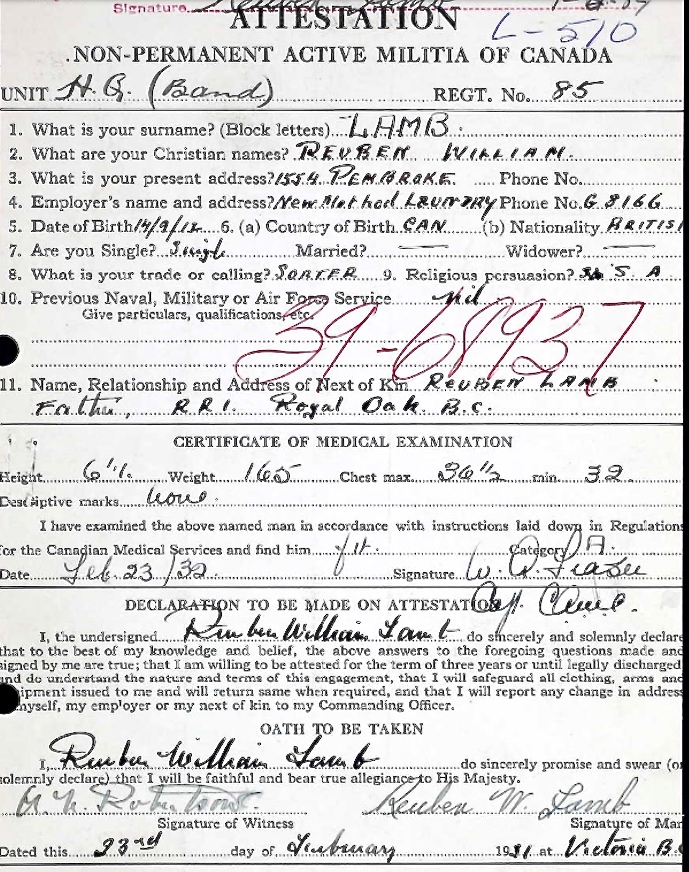 Signature
ATTESTATION
L-510
NON-PERMANENT ACTIVE MILITIA OF CANADA
UNIT H.Q. (Band) REGT. No. 85
1. What is your surname? (Block letters) LAMB
2. What are your Christian names? REUBEN WILLIAM.
3. What is your present address? 1554 PEMBROKE Phone No.
4. Employer's name and address? New Method LAUNDRY Phone No. G 8166
5. Date of Birth 14/9/12 6. (a) Country of Birth CAN (b) Nationality BRITIS
7. Are you Single? Single Married? — Widower? —
8. What is your trade or calling? SORTER 9. Religious persuasion? S. A
10. Previous Naval, Military or Air Force Service nil
Give particulars, qualifications, etc.
39-68937
11. Name, Relationship and Address of Next of Kin REUBEN LAMB
Father, R.R.1. Royal Oak. B.C.
CERTIFICATE OF MEDICAL EXAMINATION
Height 6'1. Weight 165 Chest max. 36 1/2 min. 32
Descriptive marks none.
I have examined the above named man in accordance with instructions laid down in Regulations
for the Canadian Medical Services and find him fit. Category A.
Date Feb. 23/32 Signature
DECLARATION TO BE MADE ON ATTESTATION
I, the undersigned Reuben William Lamb do sincerely and solemnly declare
that to the best of my knowledge and belief, the above answers to the foregoing questions made and
signed by me are true; that I am willing to be attested for the term of three years or until legally discharged
and do understand the nature and terms of this engagement, that I will safeguard all clothing, arms and
ipment issued to me and will return same when required, and that I will report any change in address
myself, my employer or my next of kin to my Commanding Officer.
OATH TO BE TAKEN
I, Reuben William Lamb do sincerely promise and swear (or
solemnly declare) that I will be faithful and bear true allegiance to His Majesty.
Robertson Reuben W. Lamb
Signature of Witness Signature of Man
Dated this 23rd day of February 1931 at Victoria B.C